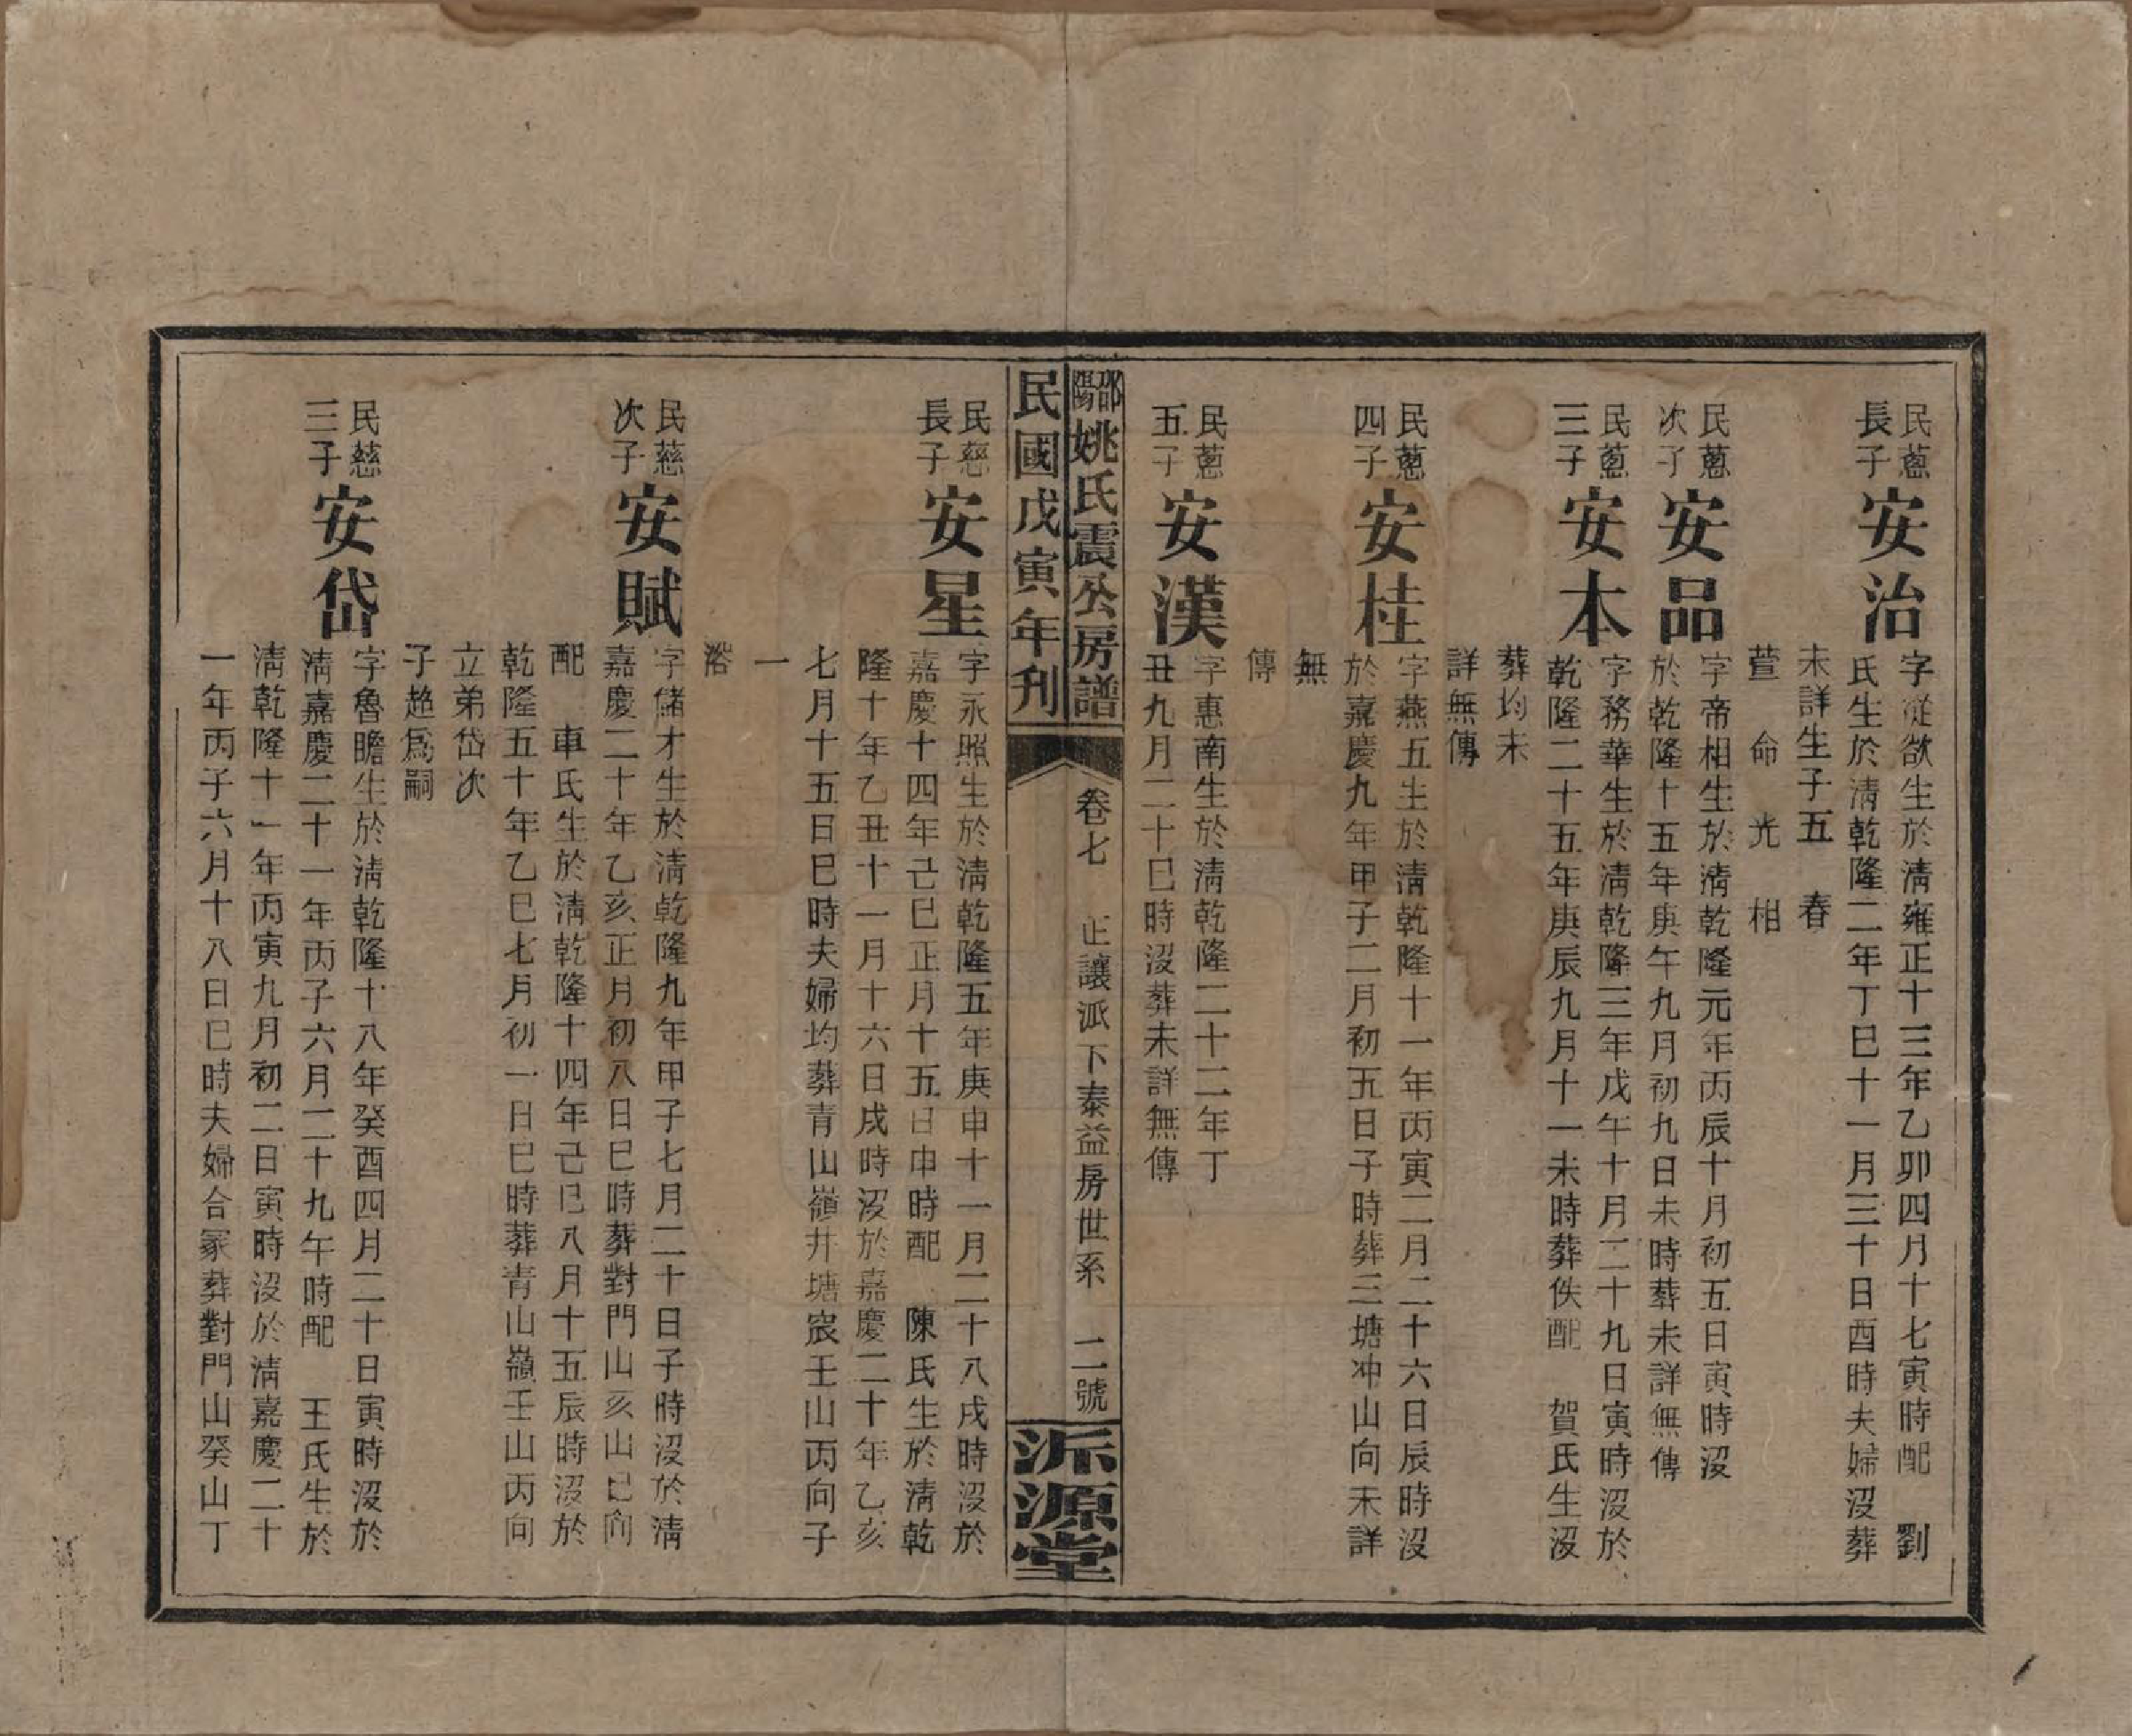 民蒽
長子
安治
字從欲生於清雍正十三年乙卯四月十七寅時配　劉
氏生於清乾隆二年丁巳十一月三十日酉時夫婦沒葬
未詳生子五　春
萱　命　光　相
民蒽
次子
安品
字帝相生於清乾隆元年丙辰十月初五日寅時沒
於乾隆十五年庚午九月初九日未時葬未詳無傳
民蒽
三子
安本
字務華生於清乾隆三年戊午十月二十九日寅時沒於
乾隆二十五年庚辰九月十一未時葬佚配　賀氏生沒
葬均未
詳無傳
民蒽
四子
安桂
字燕五生於清乾隆十一年丙寅二月二十六日辰時沒
於嘉慶九年甲子二月初五日子時葬三塘冲山向未詳
無
傳
民蒽
五子
安漢
字惠南生於清乾隆二十二年丁
丑九月二十巳時沒葬未詳無傳
邵陽姚氏震公房譜
卷七　正讓派下泰益房世系　二號
民國戊寅年刋
派源堂
民慈
長子
安星
字永照生於清乾隆五年庚申十一月二十八戌時沒於
嘉慶十四年己巳正月十五日申時配　陳氏生於清乾
隆十年乙丑十一月十六日戌時沒於嘉慶二十年乙亥
七月十五日巳時夫婦均葬青山嶺井塘宸壬山丙向子
一
民慈
次子
安賦
字儲才生於清乾隆九年甲子七月二十日子時沒於清
嘉慶二十年乙亥正月初八日巳時葬對門山亥山巳向
配　車氏生於清乾隆十四年己巳八月十五辰時沒於
乾隆五十年乙巳七月初一日巳時葬青山嶺壬山丙向
立弟岱次
子趙爲嗣
民慈
三子
安岱
字魯瞻生於清乾隆十八年癸酉四月二十日寅時沒於
清嘉慶二十一年丙子六月二十九午時配　王氏生於
清乾隆十一年丙寅九月初二日寅時沒於清嘉慶二十
一年丙子六月十八日巳時夫婦合冢葬對門山癸山丁